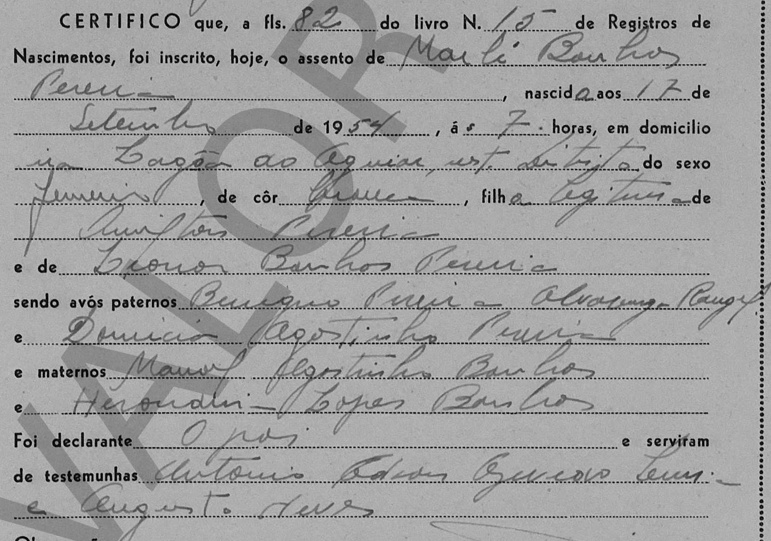 CERTIFICO que, a fls. 82 do livro N. 15 de Registros de
Nascimentos, foi inscrito, hoje, o assento de Marli Banhos
Pereira, nascida aos 17 de
Setembro de 1954, ás 7 horas, em domicilio
na Lagôa do Aguiar, nst. Distrito do sexo
femenino, de côr branca, filha legitima de
Amilton Pereira
e de Leonor Banhos Pereira
sendo avós paternos Benigno Pereira Alvarenga Rangel
e Domicia Agostinho Pereira
e maternos Manoel Agostinho Banhos
e Herondina Lopes Banhos
Foi declarante O pai e serviram
de testemunhas Antonio Azevedo
e Augusto Neves
VALOR